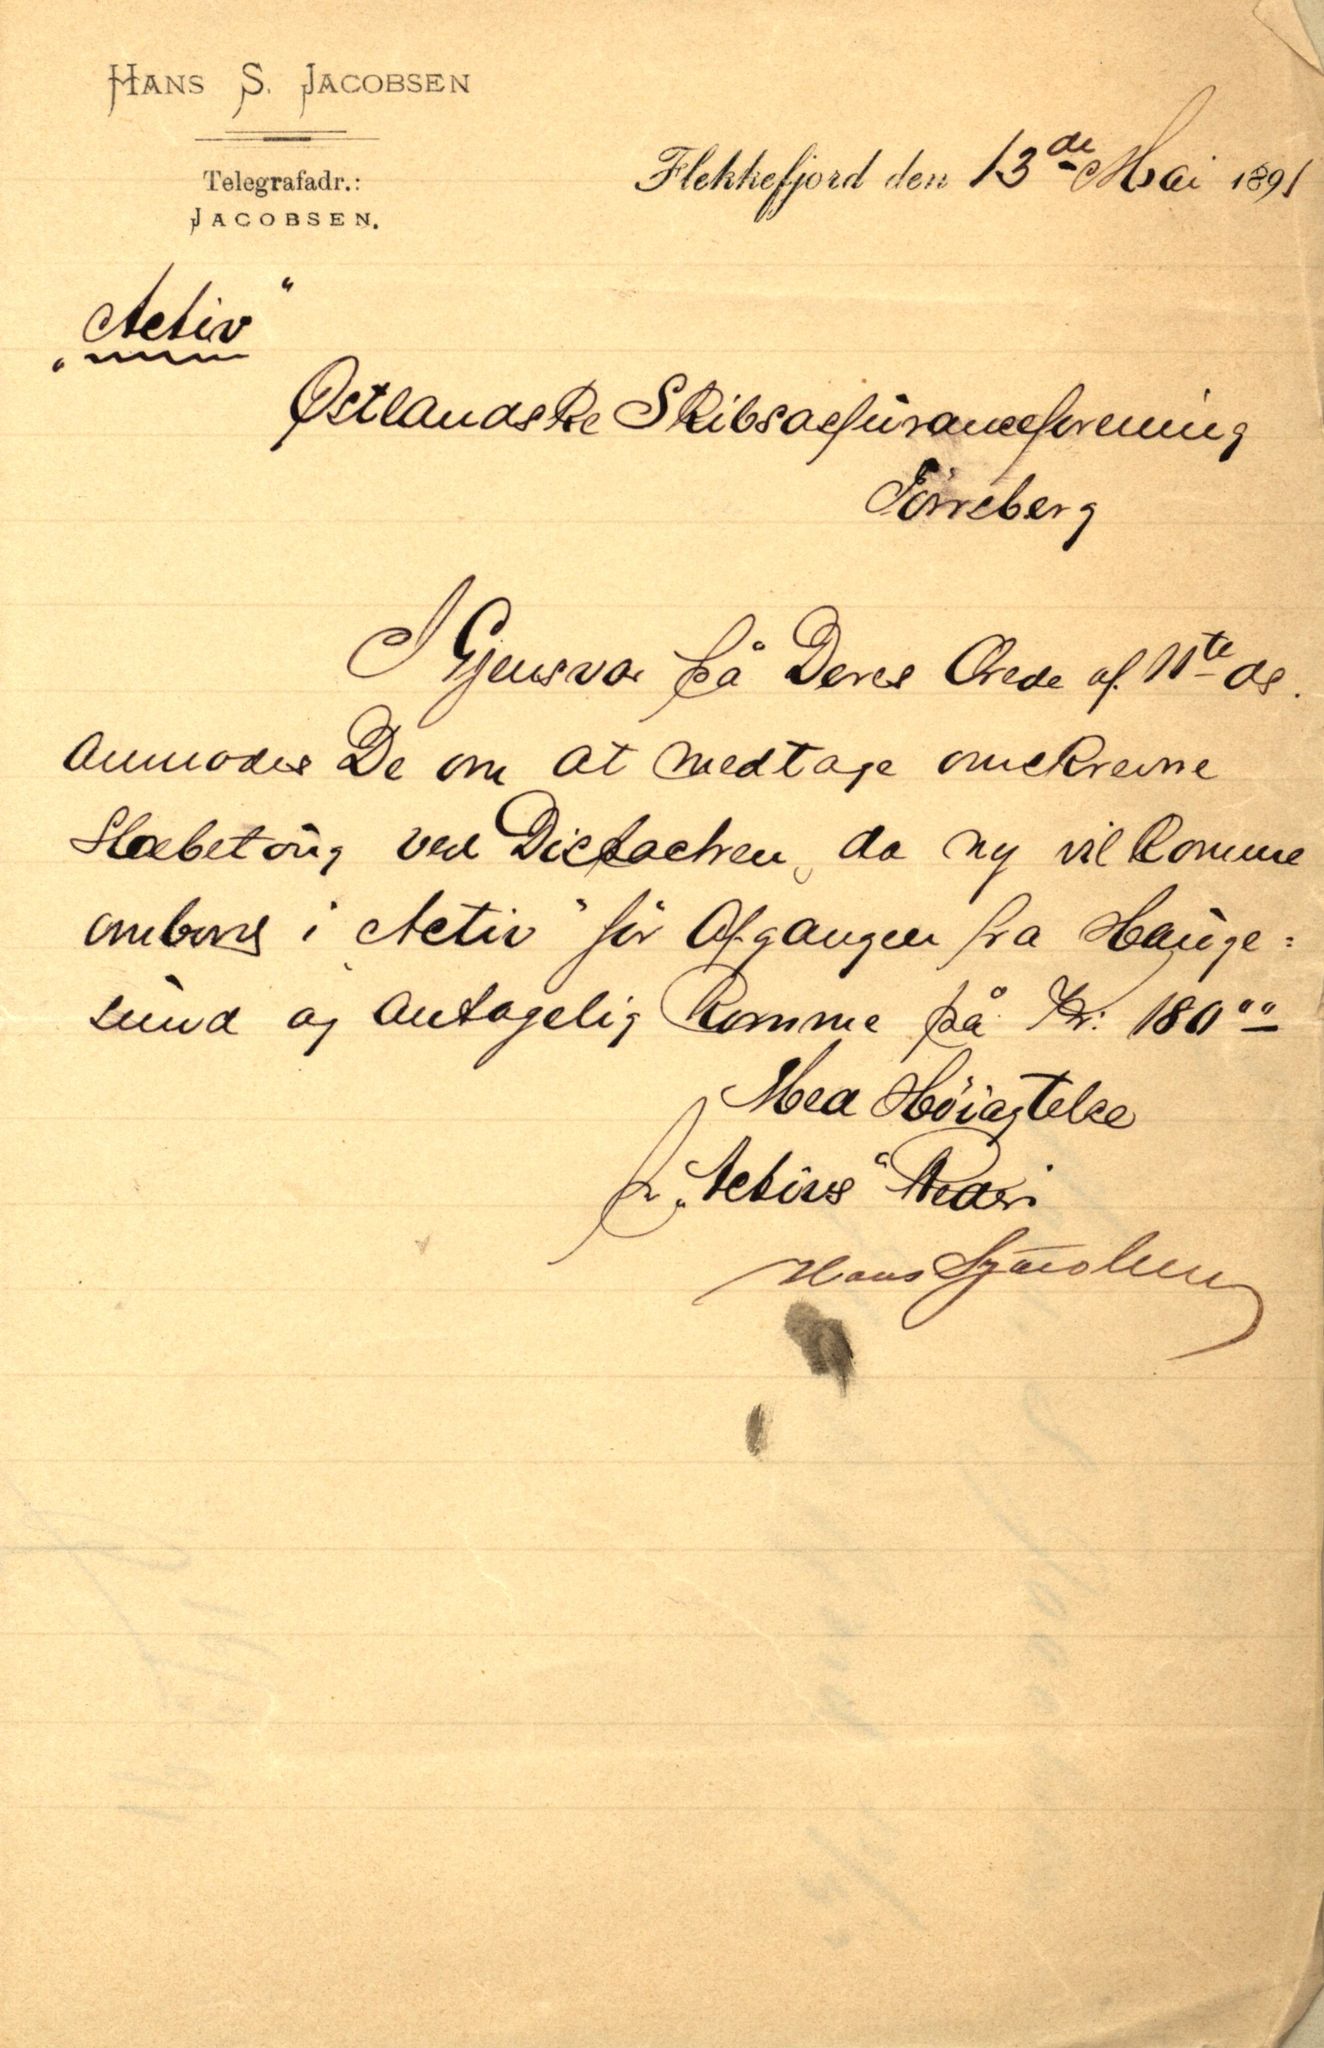 HANS S. JACOBSEN
Telegrafadr.:
JACOBSEN.
Flekkefjord den 13de Mai 1891
„Activ“
Østlandske Skibsassuranceforening
Tönsberg
I Gjensvar på Deres Ærede af 11te ds.
anmodes De om at medtage omskrevne
Slæbetoug ved Dispachen, da ny vil komme
ombord i „Activ“ för Afgangen fra Hauge=
sund og antagelig komme på Kr: 180""
Med Höiagtelse
p. „Activs“ Rederi
Hans S Jacobsen